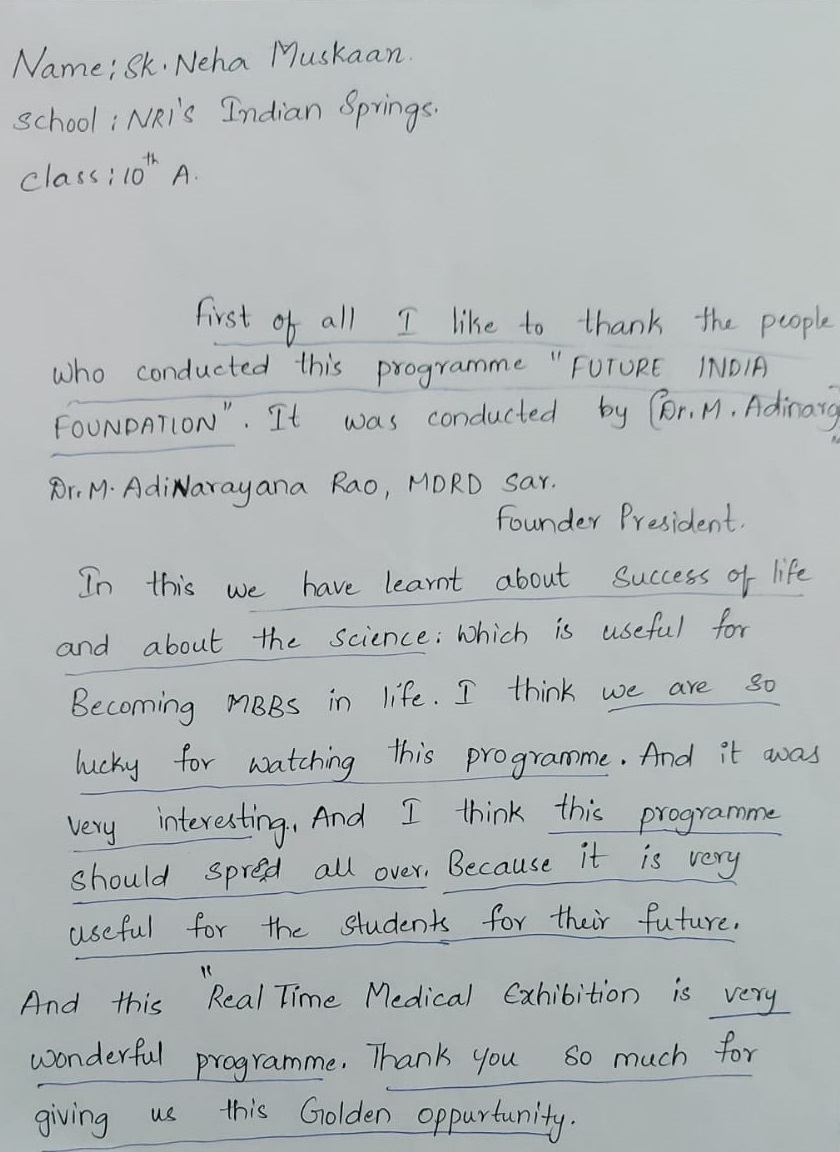 Name: Sk. Neha Muskaan.
School: NRI's Indian Springs.
Class: 10th A.
First of all I like to thank the people
who conducted this programme "FUTURE INDIA
FOUNDATION". It was conducted by (Dr. M. Adinarg
Dr. M. AdiNarayana Rao, MDRD Sar.
Founder President.
In this we have learnt about Success of life
and about the science: Which is useful for
Becoming MBBS in life. I think we are so
lucky for watching this programme. And it was
very interesting., And I think this programme
should spred all over. Because it is very
useful for the students for their future.
And this "Real Time Medical Exhibition is very
wonderful programme. Thank you so much for
giving us this Golden oppurtunity.